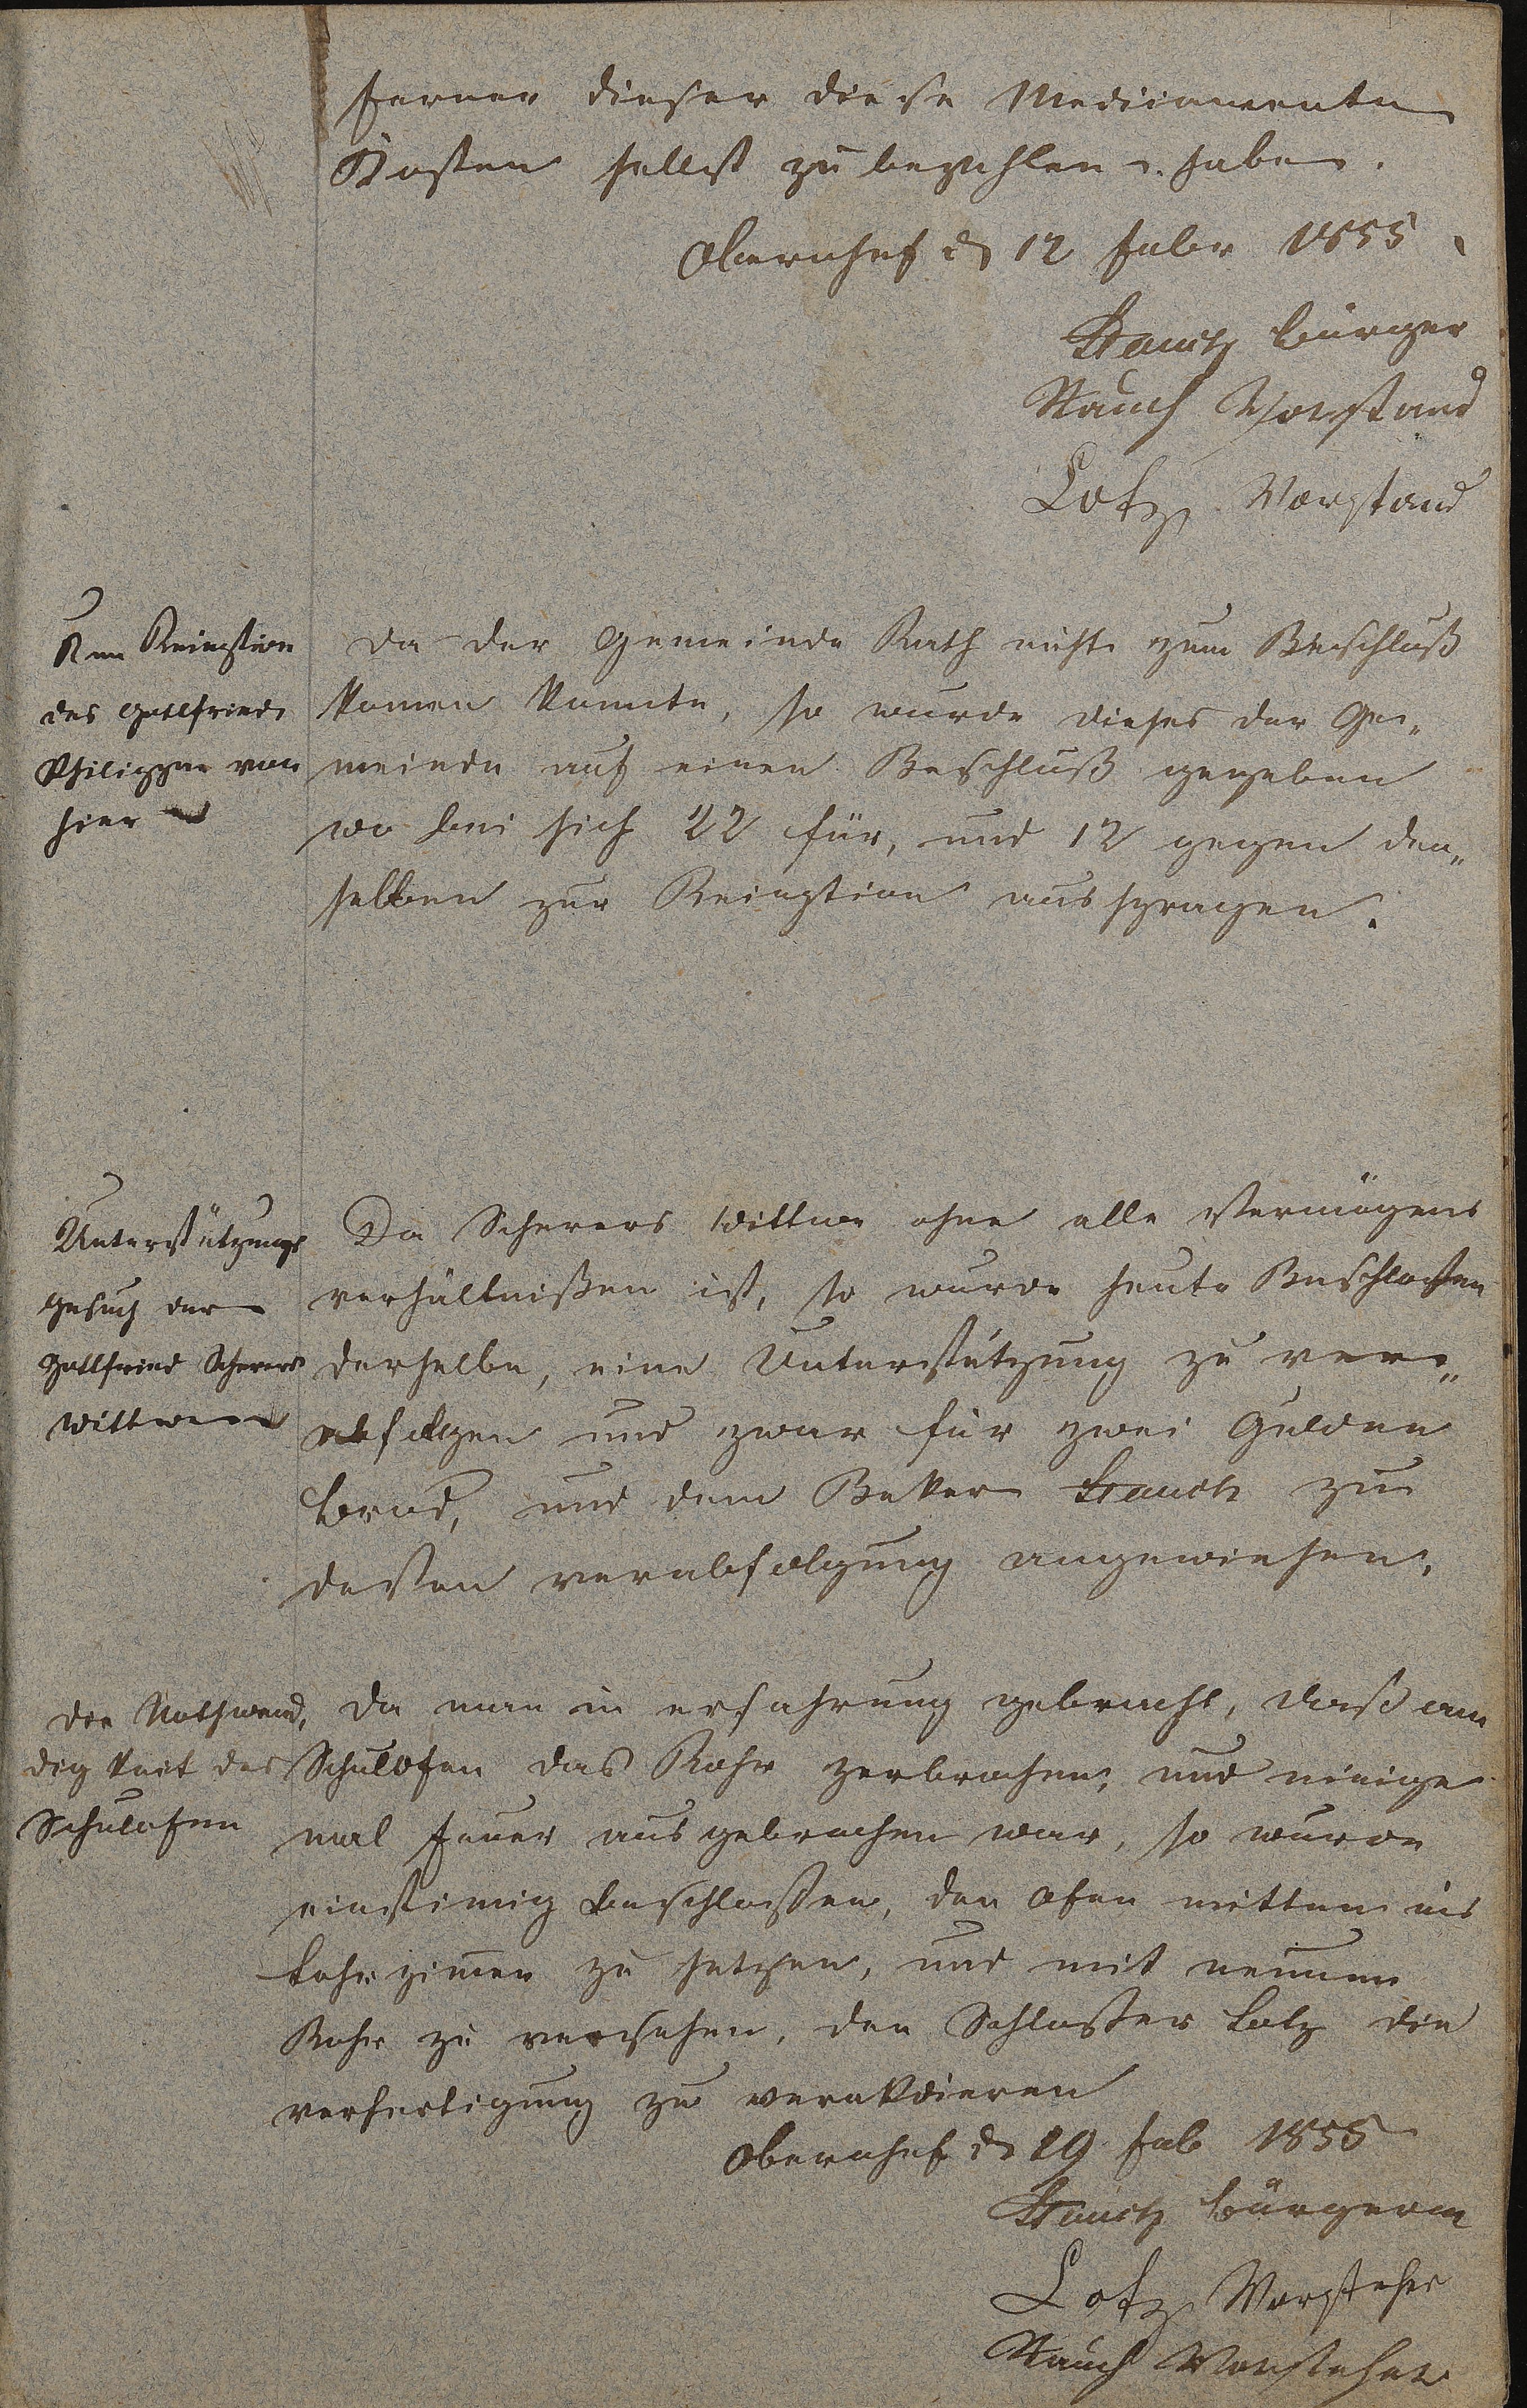 ferner dieser diese Medicamente
Kosten selbst zu bezahlen haben.
Obernhof d 12 Febr 1855
Stauch bürger
Rauch Vorstand
Lotz Vorstand
Reception
des Gottfried
Philippar von
hier
Da der Gemeinde Rath nicht zum Beschluß
komen konnte, so wurde dieses der Ge„
meinde auf einen Beschluß gegeben
wo bei sich 22 für, und 12 gegen den„
selben zur Reception ausspragen.
Unterstützungs
gesuch der
Gottfried Scherers
Wittwe
Da Scherers Wittwe ohne alle Vermögens
verhältnißen ist, so wurde heute Beschloßen
derselbe, eine Unterstützung zu ver„
abfolgen und zwar für zwei Gulden
Brod, und dem Beker Stauch zu
deßen verabfolgung angewiesen.
Die Nothwend,
dig keit des
Schulofen
Da man in erfahrung gebracht, daß am
Schulofen das Rohr zerbrochen, und einige
mal feuer aus gebrochen war, so wurde
einstimig beschloßen, den ofen mitten ins
Lehr zimer zu setzen, und mit neuem
Rohr zu versehen, den Schloßer Lotz die
verfertigung zu verakdieren
Obernhof d 19 Feb 1855
Stauch bürgerm
Lotz Vorsteher
Rauch Vorsteher